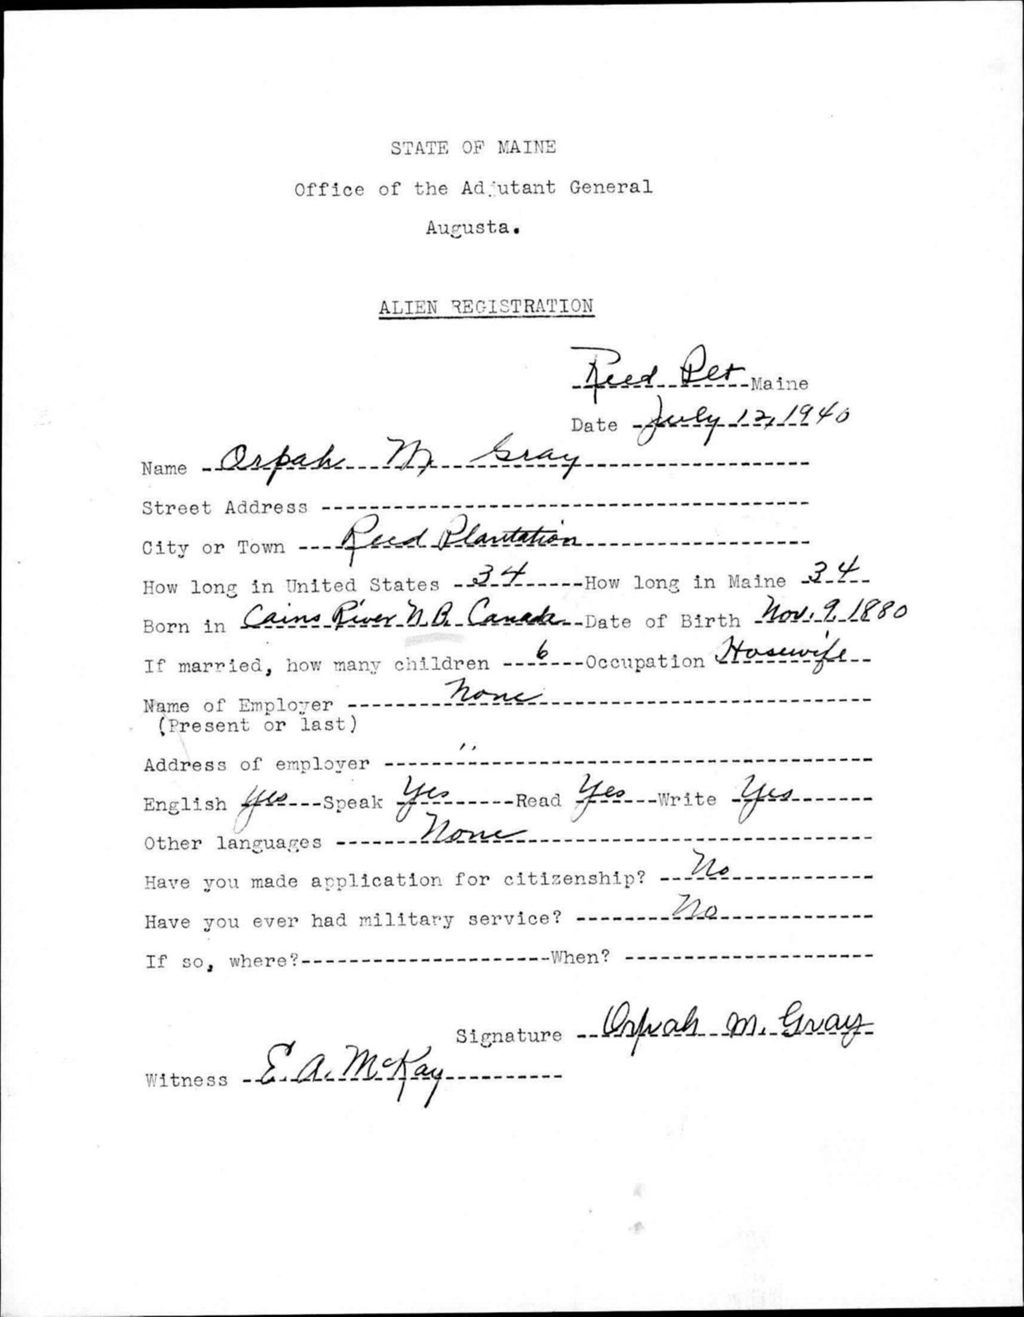 STATE OF MAINE
Office of the Adjutant General
Augusta.
ALIEN REGISTRATION
Reed Plt Maine
Date July 12, 1940
Name Orpah M Gray
Street Address
City or Town Reed Plantation
How long in United States 34 How long in Maine 34
Born in Cains River N.B. Canada Date of Birth Nov. 9. 1880
If married, how many children 6 Occupation Hosewife
Name of Employer None
(Present or last)
Address of employer "
English Yes Speak Yes Read Yes Write Yes
Other languages None
Have you made application for citizenship? No
Have you ever had military service? No
If so, where? When?
Signature Orpah M. Gray
Witness E. A. McKay